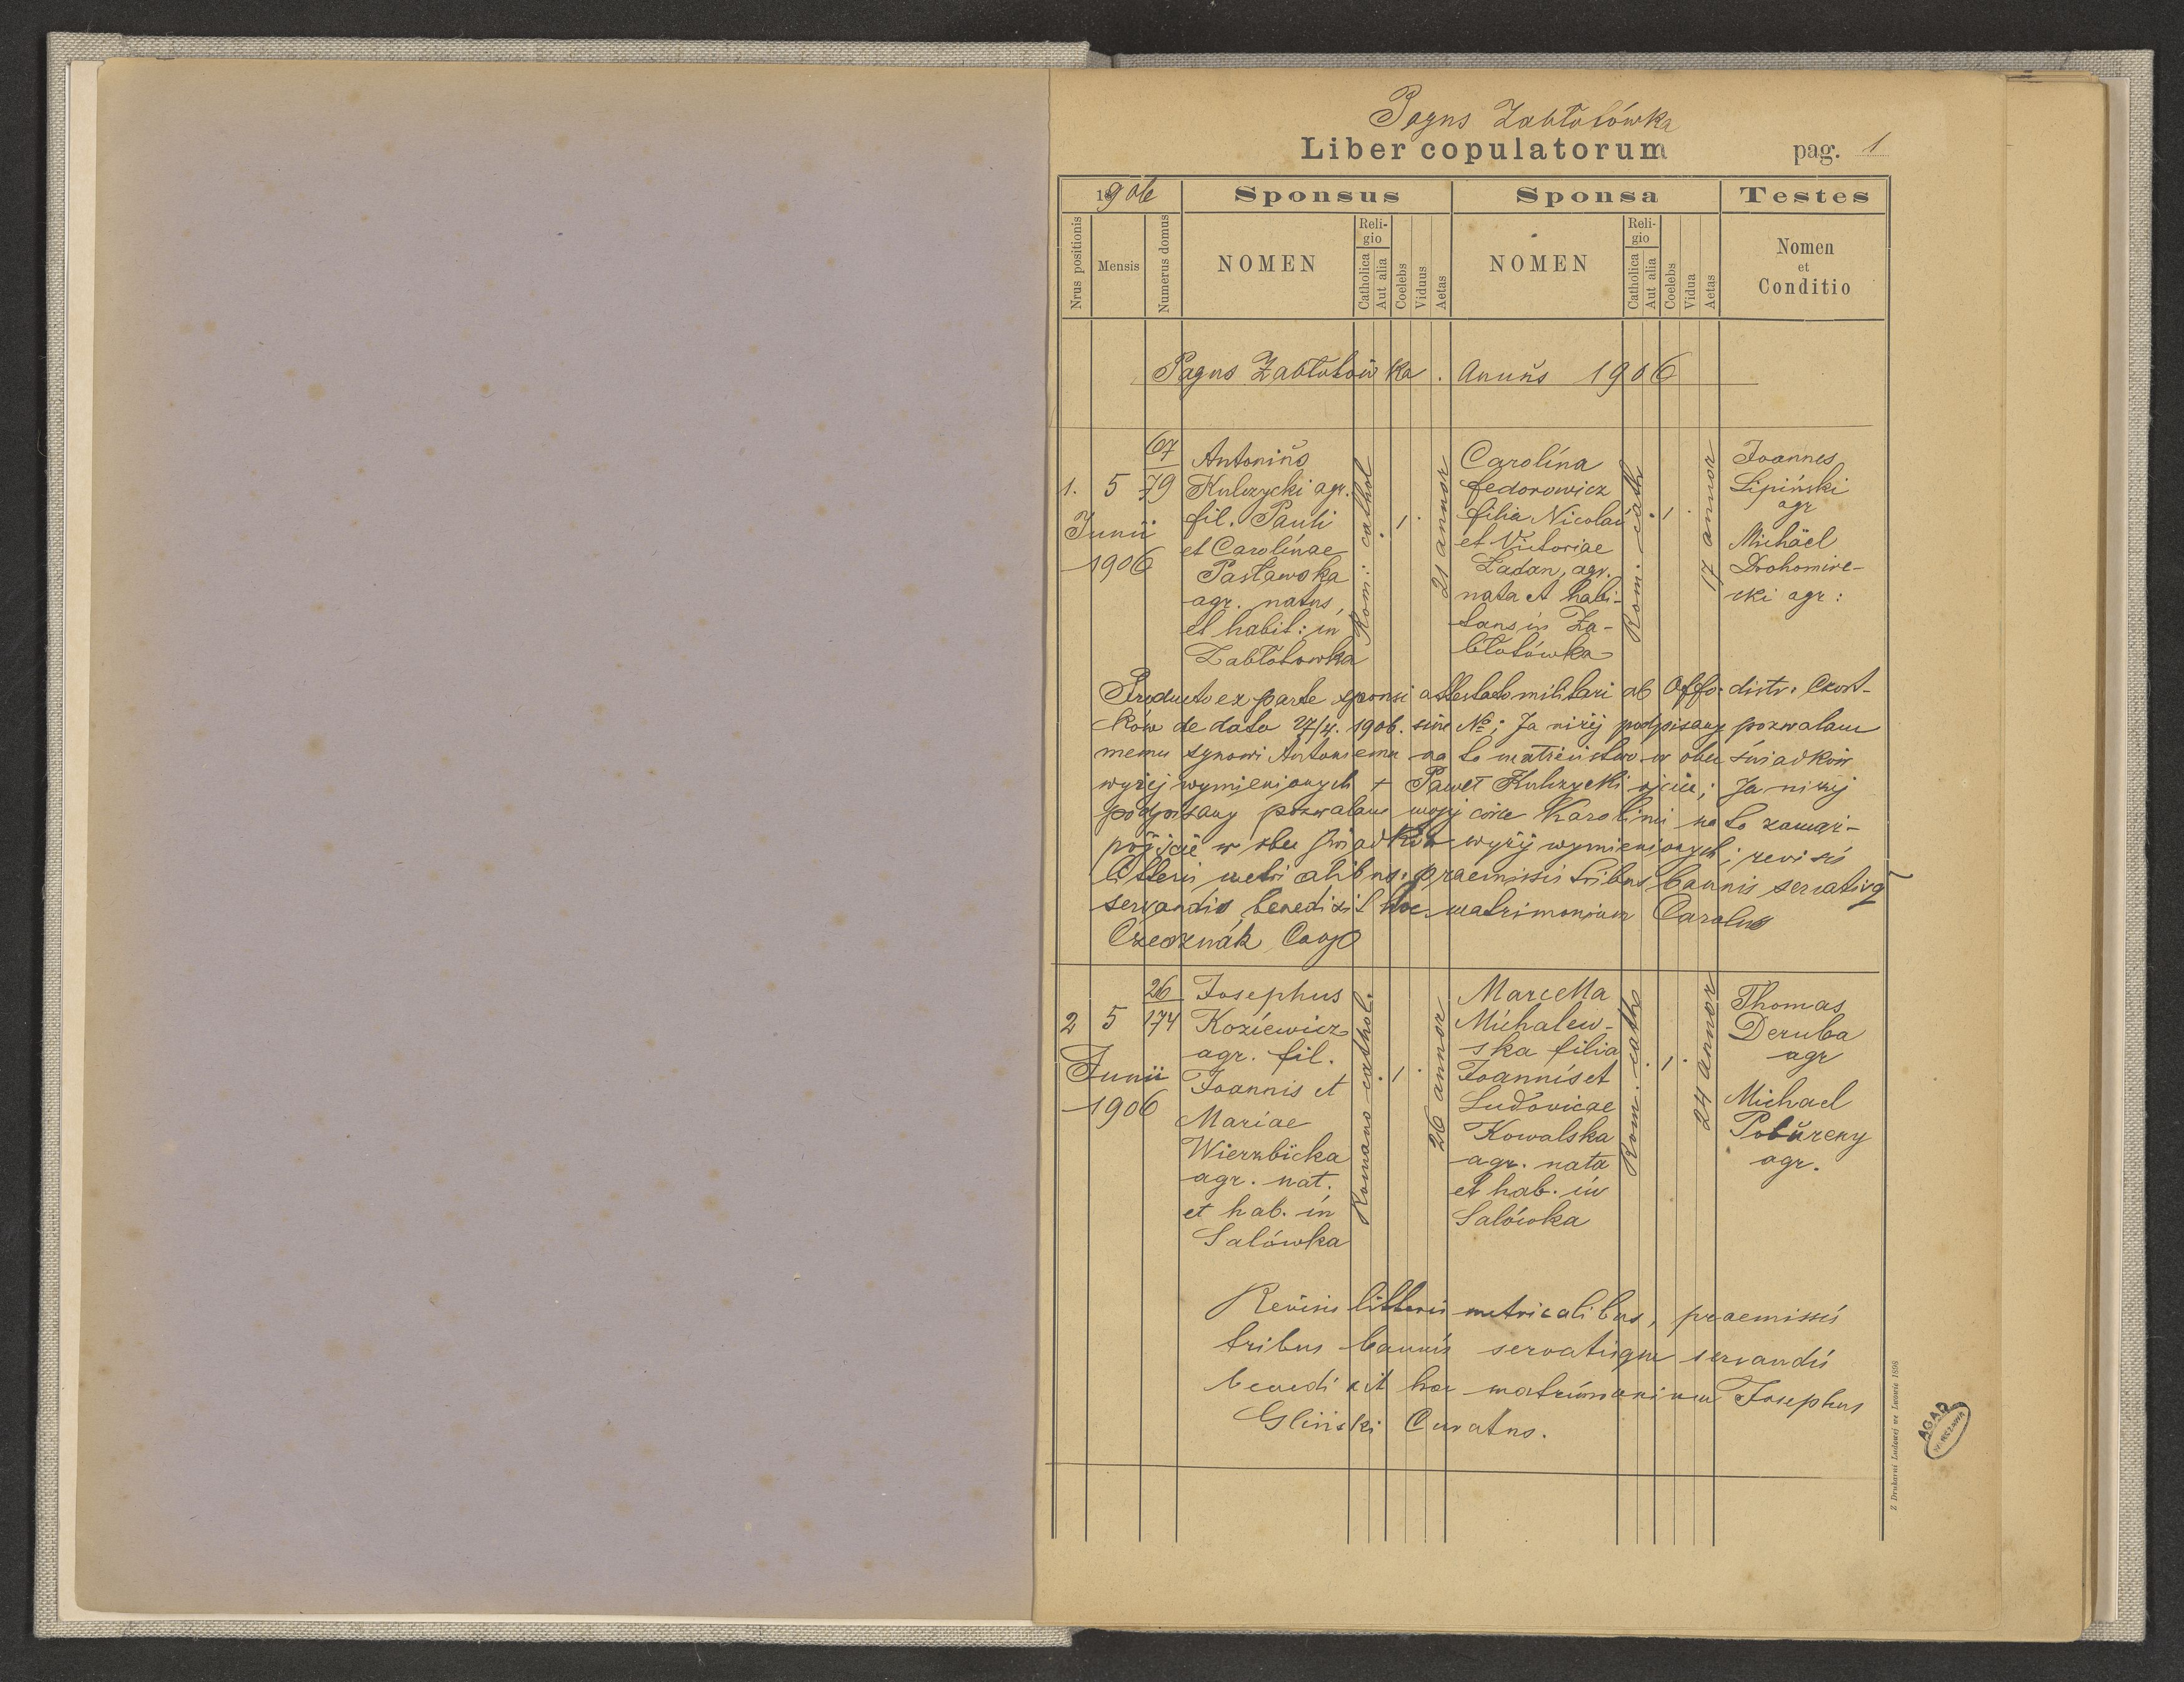 Pagus Zabłotówka
Liber copulatorum
pag. 1
1906
Sponsus
Sponsa
Testes
Nrus positionis
Mensis
Numerus domus
NOMEN
Religio
Catholica
Aut alia
Coelebs
Viduus
Aetas
NOMEN
Religio
Catholica
Aut alia
Coelebs
Vidua
Aetas
Nomen
et
Conditio
Pagus Zabłotówka. Annus 1906
1.
5
Junii
1906
67
79
Antonius
Kulczycki agr.
fil. Pauli
et Carolinae
Pasławska
agr. natus,
et habit: in
Zabłotowka
Rom: cathol
1
21 annor
Carolina
Fedorowicz
filia Nicolai
et Victoriae
Ladan, agr.
nata et habi-
tans in Za-
błotówka
Rom. cath
1
17 annor
Joannes
Lipiński
agr
Michäel
Drohomire-
cki agr:
Producto ex parte sponsi attestato militari ab Offo. distr. Czort-
ków de dato 27/4. 1906. sine No; Ja niżej podpisany pozwalam
memu synowi Antoniemu na to małżeństwo w obec świadków
wyżej wymienionych + Paweł Kulczycki ojciec; Ja niżej
podpisany pozwalam mojej córce Karolinie na to zamąż-
pójście w obec świadków wyżej wymienionych; revisis
litteris metricalibus. praemissis tribus bannis servatisq
servandis benedixit hoc matrimonium Carolus
2
5
Junii
1906
26
174
Josephus
Koziewicz
agr. fil.
Joannis et
Mariae
Wierzbicka
agr. nat.
et hab. in
Salówka
Romano cathol.
1
26 annor
Marcella
Michalew-
ska filia
Joannis et
Ludovicae
Kowalska
agr. nata
et hab. in
Salówka
Rom. cath
1
24 annor
Thomas
Deruba
agr
Michael
Pobureny
agr.
Revisis litteris metricalibus, praemissis
tribus bannis servatisque servandis
benedixit hoc matrimonium Josephus
Gliński Curatus.
Z Drukarni Ludowej we Lwowie 1898
AGAD